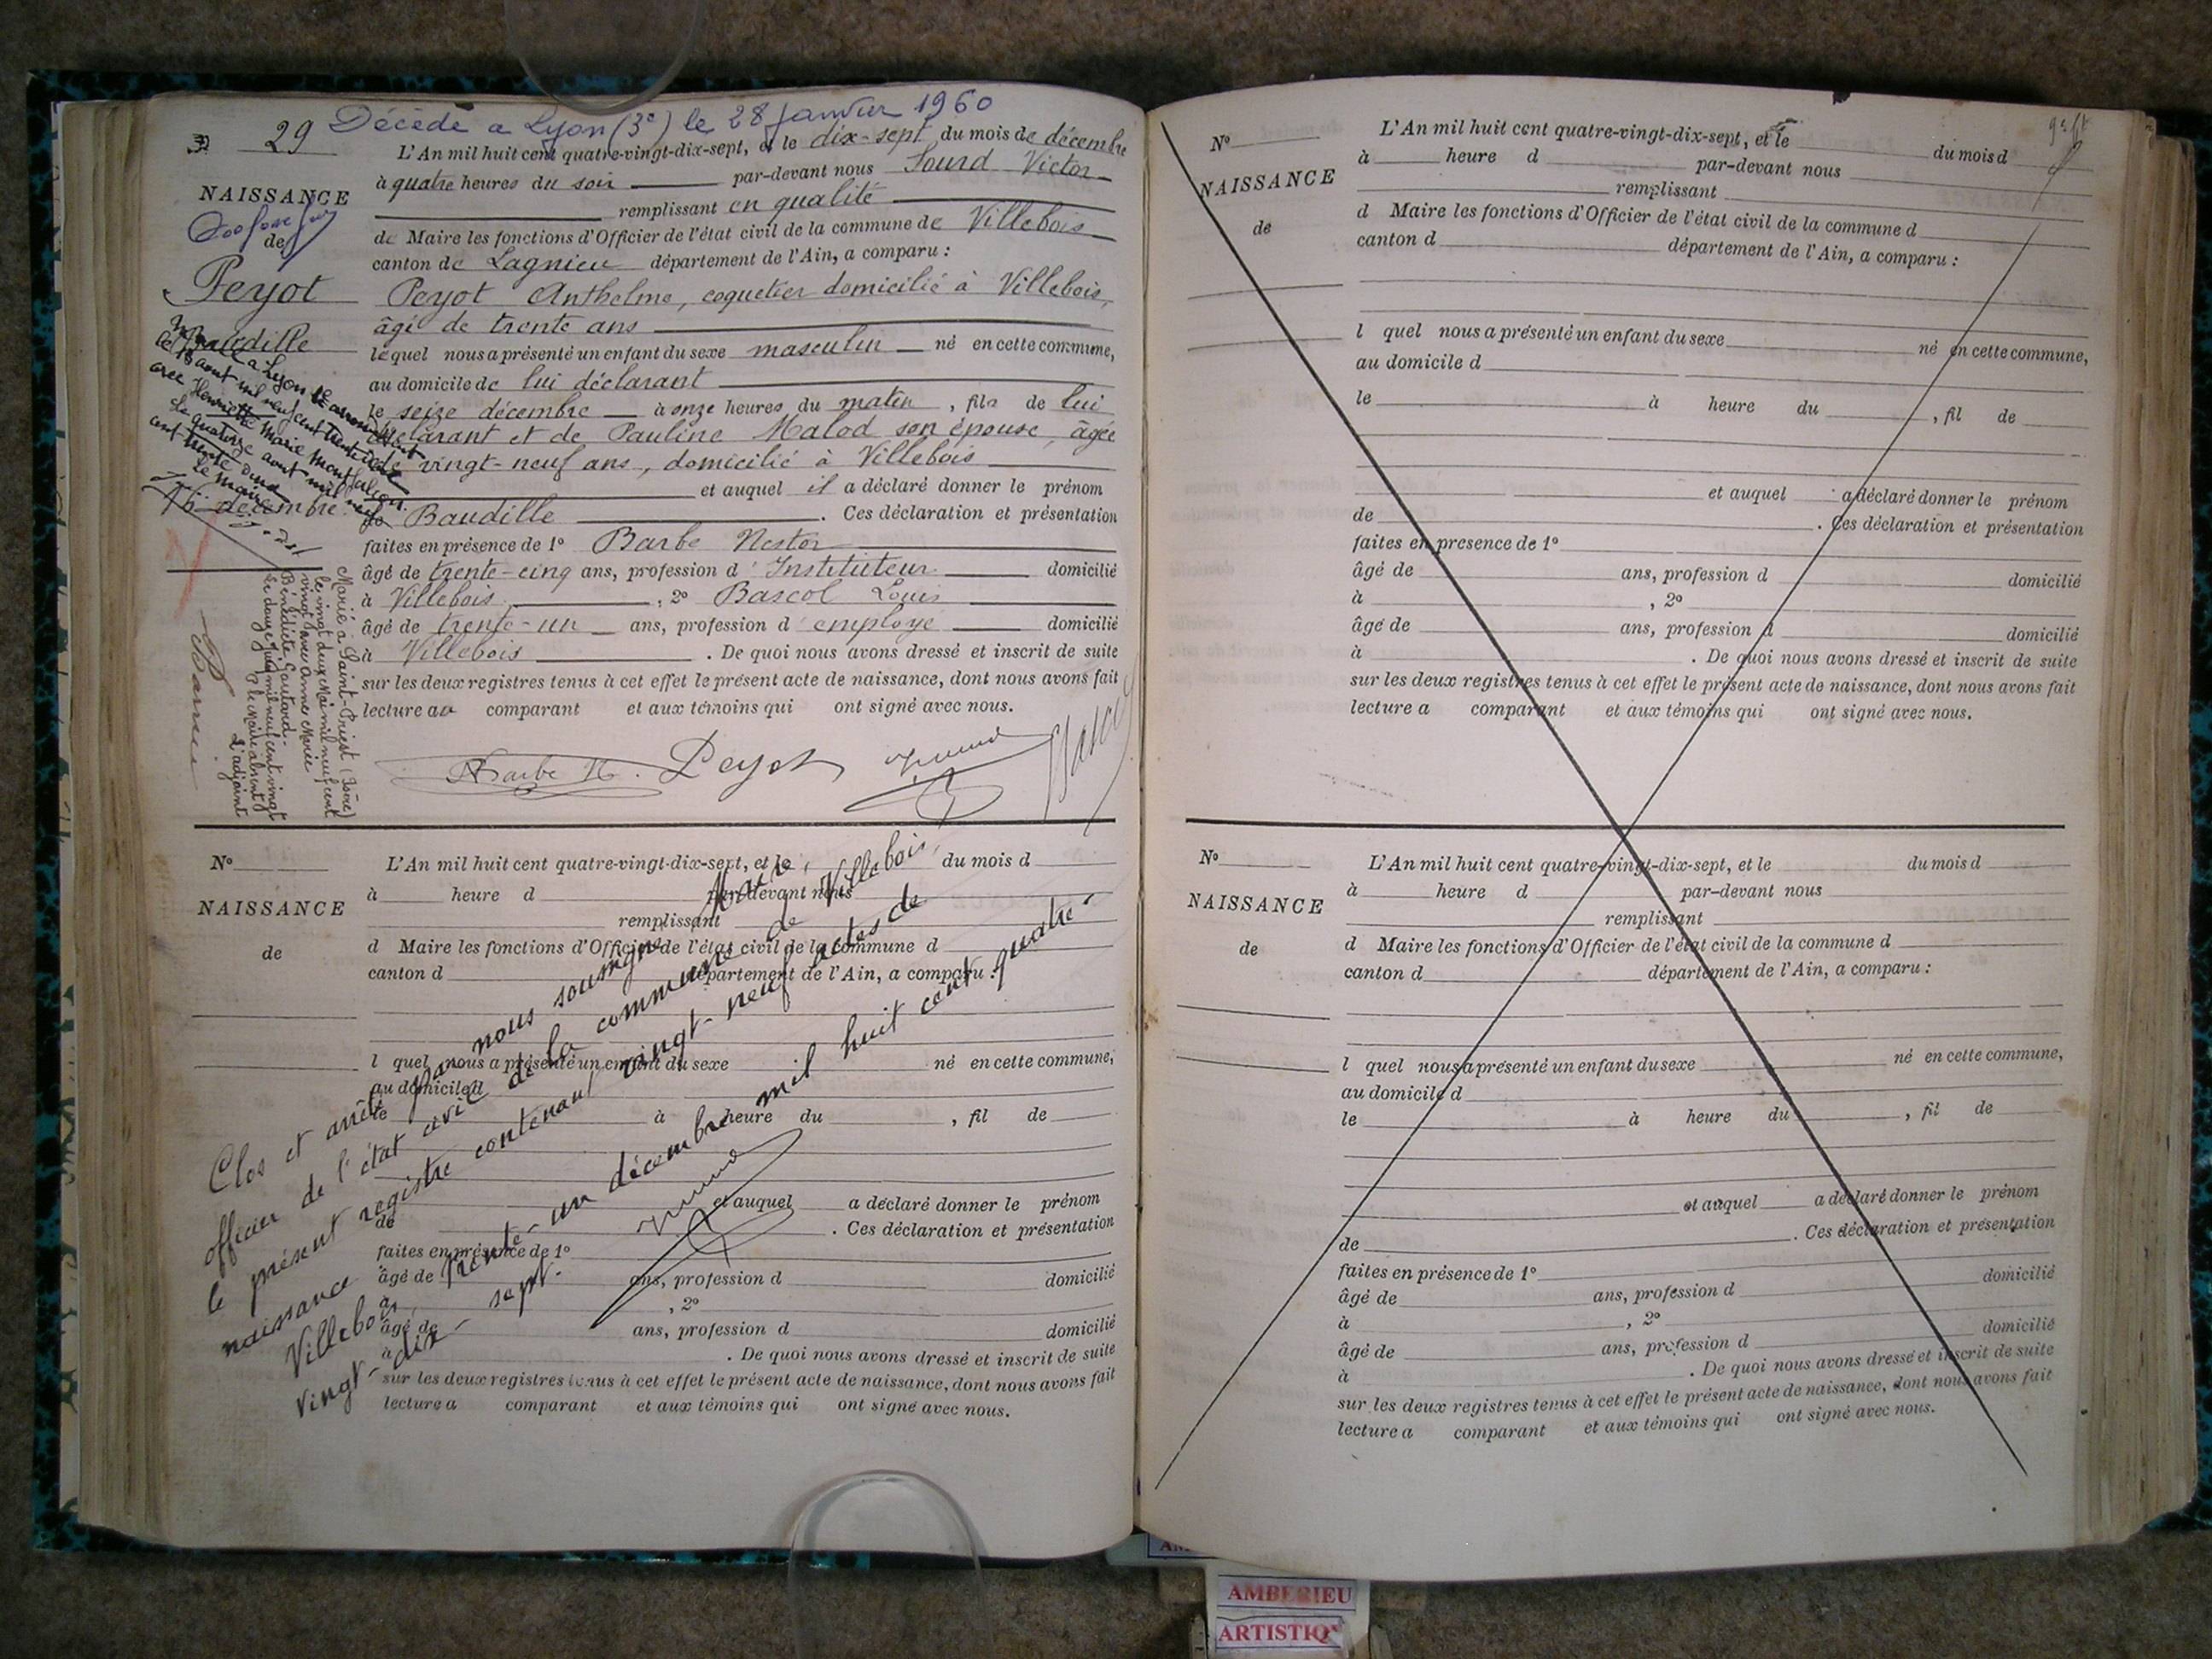 Décédé a Lyon (3e) le 28 Janvier 1960
29
NAISSANCE
de
Peyot
Baudille
16 décembre
L'An mil huit cent quatre-vingt-dix-sept, et le dix-sept du mois de décembre
à quatre heures du soir par-devant nous Sourd Victor
remplissant en qualité
de Maire les fonctions d'Officier de l'état civil de la commune de Villebois
canton de Lagnieu département de l'Ain, a comparu :
Peyot Anthelme, coquetier domicilié à Villebois,
âgé de trente ans
lequel nous a présenté un enfant du sexe masculin né en cette commune,
au domicile de lui déclarant
le seize décembre à onze heures du matin, fils de lui
déclarant et de Pauline Malod son épouse, âgée
de vingt-neuf ans, domicilié à Villebois
et auquel il a déclaré donner le prénom
de Baudille . Ces déclaration et présentation
faites en présence de 1° Barbe Nestor
âgé de trente-cinq ans, profession d'Instituteur domicilié
à Villebois, 2° Bascol Louis
âgé de trente-un ans, profession d'employé domicilié
à Villebois . De quoi nous avons dressé et inscrit de suite
sur les deux registres tenus à cet effet le présent acte de naissance, dont nous avons fait
lecture au comparant et aux témoins qui ont signé avec nous.
Barbe N. Peyot
Marié à Lyon 3e arrondissement
le 18 aout mil neuf cent trente deux
avec Henriette Marie Montfalcon
Le quatorze aout mil neuf
cent trente deux
Le maire
Marié à Saint-Priest (Isère)
le vingt deux Mai mil neuf cent
vingt avec Anne Marie
Bénédicte Coutard.
Le douze Juin mil neuf cent vingt
P le Maire absent
L'adjoint
N°
NAISSANCE
de
L'An mil huit cent quatre-vingt-dix-sept, et le du mois d
à heure d par-devant nous
remplissant
d Maire les fonctions d'Officier de l'état civil de la commune d
canton d département de l'Ain, a comparu :
l quel nous a présenté un enfant du sexe né en cette commune,
au domicile d
le à heure du , fil de
et auquel a déclaré donner le prénom
de . Ces déclaration et présentation
faites en présence de 1°
âgé de ans, profession d domicilié
à , 2°
âgé de ans, profession d domicilié
à . De quoi nous avons dressé et inscrit de suite
sur les deux registres tenus à cet effet le présent acte de naissance, dont nous avons fait
lecture a comparant et aux témoins qui ont signé avec nous.
Clos et arrêté par nous soussigné, Maire,
officier de l'état civil de la commune de Villebois,
le présent registre contenant vingt-neuf actes de
naissance
Villebois, trente-un décembre mil huit cent quatre-
vingt-dix-sept.
N°
NAISSANCE
de
L'An mil huit cent quatre-vingt-dix-sept, et le du mois d
à heure d par-devant nous
remplissant
d Maire les fonctions d'Officier de l'état civil de la commune d
canton d département de l'Ain, a comparu :
l quel nous a présenté un enfant du sexe né en cette commune,
au domicile d
le à heure du , fil de
et auquel a déclaré donner le prénom
de . Ces déclaration et présentation
faites en presence de 1°
âgé de ans, profession d domicilié
à , 2°
âgé de ans, profession d domicilié
à . De quoi nous avons dressé et inscrit de suite
sur les deux registres tenus à cet effet le présent acte de naissance, dont nous avons fait
lecture a comparant et aux témoins qui ont signé avec nous.
N°
NAISSANCE
de
L'An mil huit cent quatre-vingt-dix-sept, et le du mois d
à heure d par-devant nous
remplissant
d Maire les fonctions d'Officier de l'état civil de la commune d
canton d département de l'Ain, a comparu :
l quel nous a présenté un enfant du sexe né en cette commune,
au domicile d
le à heure du , fil de
et auquel a déclaré donner le prénom
de . Ces déclaration et présentation
faites en présence de 1°
âgé de ans, profession d domicilié
à , 2°
âgé de ans, profession d domicilié
à . De quoi nous avons dressé et inscrit de suite
sur les deux registres tenus à cet effet le présent acte de naissance, dont nous avons fait
lecture a comparant et aux témoins qui ont signé avec nous.
AMBERIEU
ARTISTIQ